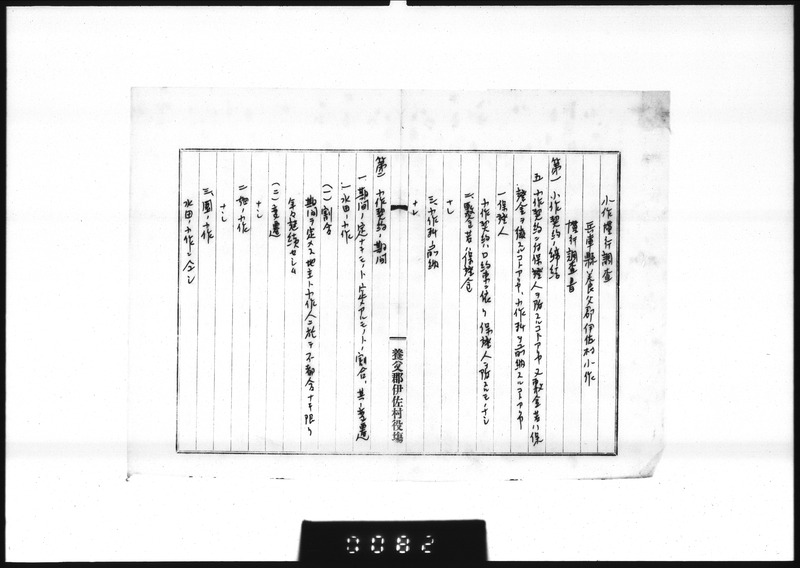 小作慣行調査
兵庫縣養父郡伊佐村小作
慣行調査書
第一 小作契約ノ締結
五 小作契約ニ付保證人ヲ附スルコトアリヤ又敷金若ハ保
證金ヲ徴スルコトアリヤ、小作料ヲ前納スルコトアリヤ
一 保證人
小作契約ハ口約束ニ依リ保證人ヲ附スルモノナシ
二、敷金若ハ保證金
ナシ
三、小作料ノ前納
ナシ
養父郡伊佐村役塲
第二 小作契約ノ期間
一 期間ノ定ナキモノト定アルモノトノ割合、其ノ変遷
一、水田ノ小作
(一) 割合
期間ヲ定メス地主ト小作人ニ於テ不都合ナキ限リ
年々継續セシム
(二) 変遷
ナシ
二 畑ノ小作
ナシ
三、園ノ小作
水田ノ小作ニ仝シ
0082